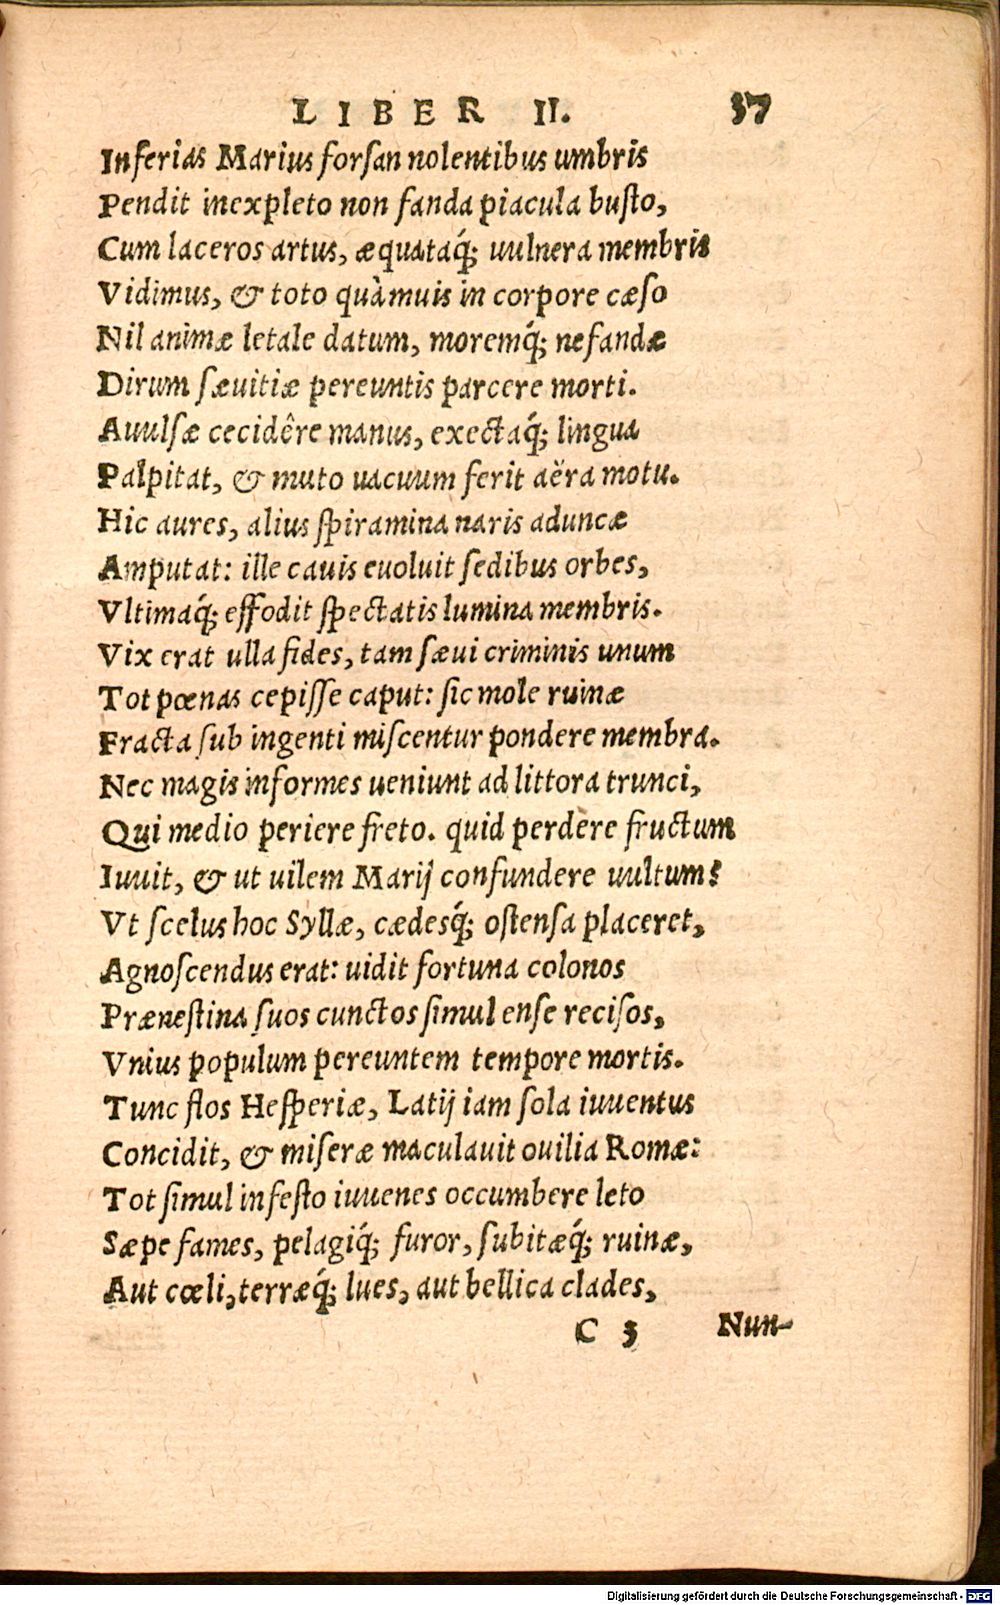 LIBER II. 37
Inferias Marius forſan nolentibus umbris
Pendit inexpleto non fanda piacula buſto,
Cum laceros artus, æquataq́; uulnera membris
Vidimus, & toto quàmuis in corpore cæſo
Nil animæ letale datum, moremq́; nefandæ
Dirum ſæuitiæ pereuntis parcere morti.
Auulſæ cecidêre manus, exectaq́; lingua
Palpitat, & muto uacuum ferit aëra motu.
Hic aures, alius ſpiramina naris aduncæ
Amputat: ille cauis euoluit ſedibus orbes,
Vltimaq́; effodit ſpectatis lumina membris.
Vix erat ulla fides, tam ſæui criminis unum
Tot pœnas cepiſſe caput: ſic mole ruinæ
Fracta ſub ingenti miſcentur pondere membra.
Nec magis informes ueniunt ad littora trunci,
Qui medio periere freto. quid perdere fructum
Iuuit, & ut uilem Marij confundere uultum?
Vt ſcelus hoc Syllæ, cædesq́; oſtenſa placeret,
Agnoſcendus erat: uidit fortuna colonos
Præneſtina ſuos cunctos ſimul enſe reciſos,
Vnius populum pereuntem tempore mortis.
Tunc flos Heſperiæ, Latij iam ſola iuuentus
Concidit, & miſeræ maculauit ouilia Romæ:
Tot ſimul infeſto iuuenes occumbere leto
Sæpe fames, pelagiq́; furor, ſubitæq́; ruinæ,
Aut cœli, terræq́; lues, aut bellica clades,
C 3 Nun-
Digitalisierung gefördert durch die Deutsche Forschungsgemeinschaft - DFG